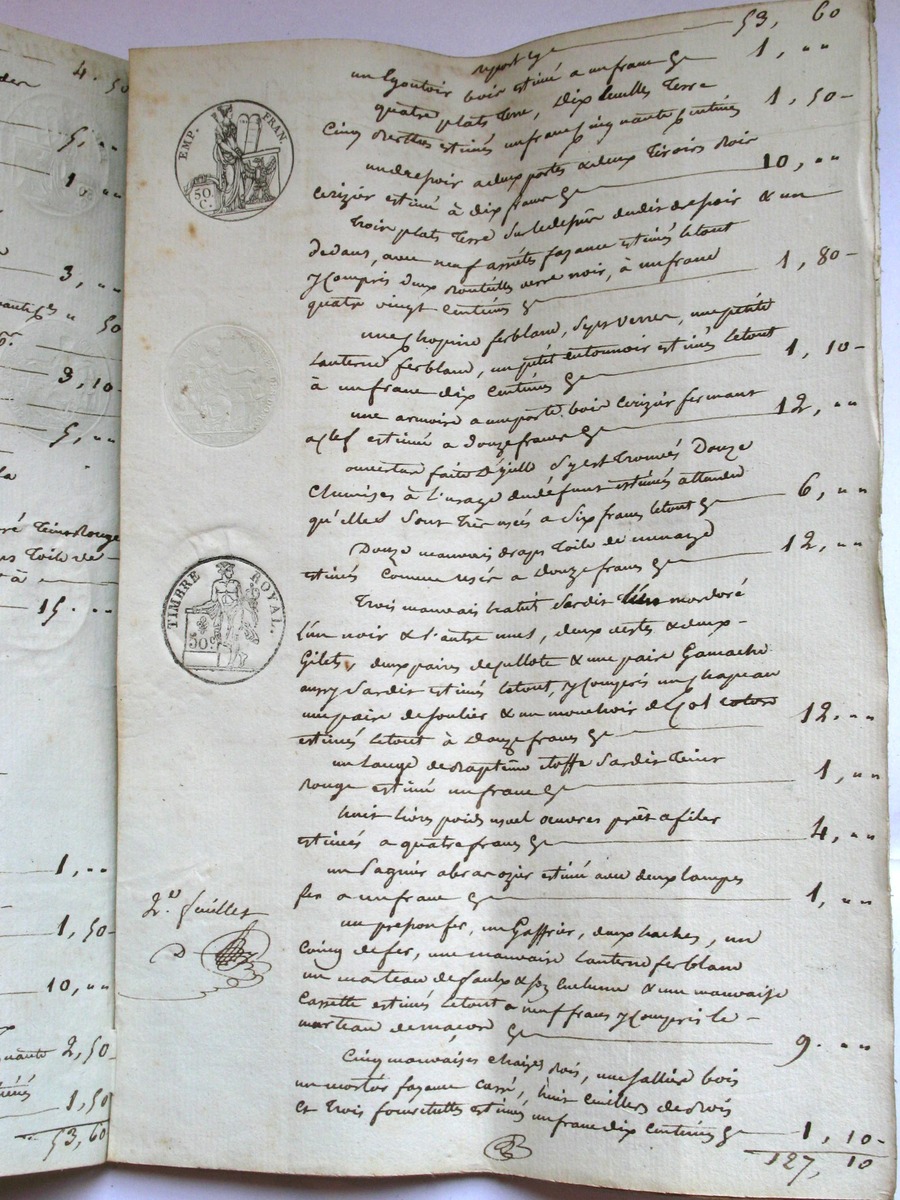 4. 50
5, ""
1, ""
3, ""
50
3, 10
5, ""
Toile de
15. ""
1, ""
1, 50
10, ""
2, 50
1, 50
53, 60
report cy 53, 60
un Egoutoir bois estimé a un franc cy 1, ""
quatre plats Terre, dix Ecuelles Terre
Cinq assettes estimés un franc cinquante centimes 1, 50
EMP. FRAN.
50 C.
un dressoir a deux portes & deux Tiroirs bois
Cerizier estimé à dix francs cy 10, ""
Trois plats Terre sur le dessus dudit dressoir & un
dedans, avec neuf assétes fayance estimés le tout
y Compris deux bouteilles verre noir, à un franc
quatre vingt centimes cy 1, 80
une chopine ferblanc, six verres, une petite
Lanterne ferblanc, un petit entonnoir estimés le tout
à un franc dix Centimes cy 1, 10
une armoire a une porte bois Cerizier fermant
a clef estimé a douze francs cy 12, ""
ouverture faite d'ycelle s'y est Trouvés Douze
Chemises à l'usage du défunt estimés attendu
qu'elles sont Très usés a Six francs le tout cy 6, ""
Douze mauvais draps Toile de menage
estimés Comme usés a Douze francs cy 12, ""
TIMBRE ROYAL.
50 c
Trois mauvais habits Sardis l'un mordoré
l'un noir & l'autre, deux vestes & deux
Gilets, deux paires de cullote & une paire Gamache
aussy Sardis estimés le tout, y Compris un chapeau
une paire de soulier & un mouchoir de Col
estimés le tout à Douze francs cy 12. ""
un Lange de Baptême étoffe Sardis Teint
rouge estimé un franc cy 1, ""
huit livres poids usuel œuvres prêt a filer
estimés a quatre francs cy 4, ""
un estimé avec deux lampes
fer a un franc cy 1, ""
2e. feuillet
un fer, un Gaffrier, deux haches, un
Coing de fer, une mauvaise Lanterne ferblanc
un marteau de faulx & son Enclume & une mauvaise
Cassette estimés le tout a neuf francs y Compris le
marteau de maçon cy 9. ""
Cinq mauvaises chaises bois, une sallier bois
un mortier fayance Cassé, huit Cuillers de bois
et Trois fourchettes estimés un franc dix Centimes cy 1, 10
127, 10